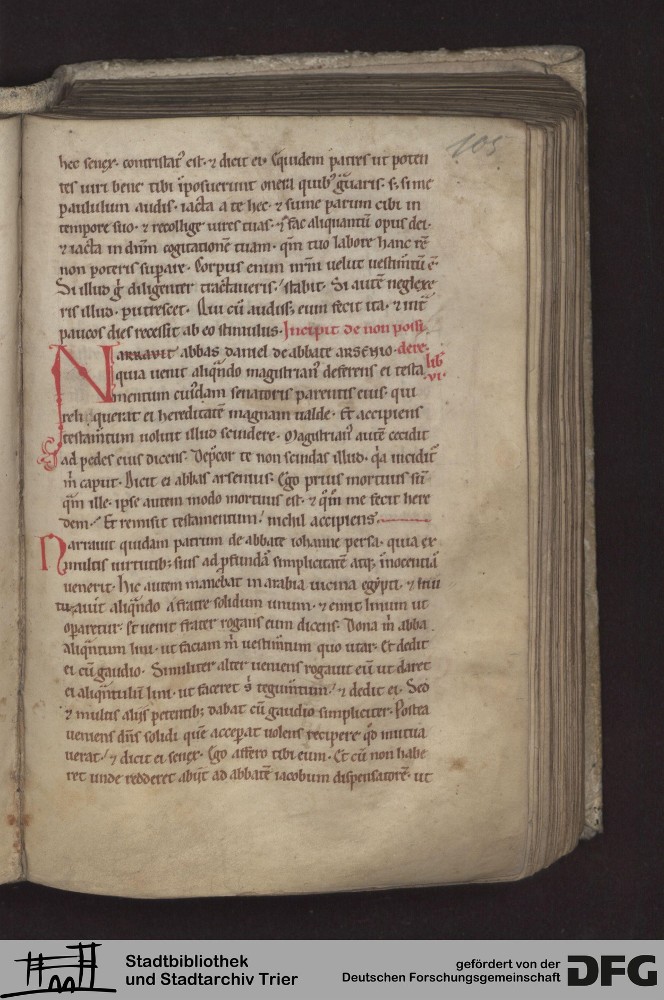 105
hec senex· contristat᷒ est· ⁊ dicit ei· Equidem patres ut poten
tes uiri bene tibi īposuerunt onera quib᷒ grauaris· s; si me
paululum audis· iacta a te hec· ⁊ sume parum cibi in
tempore suo· ⁊ recollige uires tuas· ⁊ fac aliquantū opus dei·
⁊ iacta in dn̄m cogitationē tuam· qm̄ tuo labore hanc rē
non poteris supare· Corpus enim nr̄m uelut uestim̄tū ē·
Si illud g̊ diligenter tractaueris/ stabit· Si autē neglexe
ris illud· putrescet· Qui cū audiss; eum fecit ita· ⁊ int᷑
paucos dies recessit ab eo stimulus· Incipit de non possi
NARRAVIT abbas daniel de abbate arsenio· dere·
lib
quia uenit aliqn̄do magistrian᷒ deferens ei testa
·vi·
mentum cui᷒dam senatoris parentis eius· qui
reliquerat ei hereditatē magnam ualde· Et accipiens
testam̄tum uoluit illud scindere· Magistrian᷒ autē cecidit
ad pedes eius dicens· Dep̄cor te non scindas illud· q̄a incidit᷑
m̄ caput· Dicit ei abbas arsenius· Ego prius mortuus sū
qm̄ ille· ipse autem modo mortuus est· ⁊ qm̄ me fecit here
dem/ Et remisit testamentum/ nichil accipiens
Narrauit quidam patrum de abbate iohanne persa· quia ex
multis uirtutib; suis ad p̄fundā simplicitatē atq; īnocentiā
uenerit· Hic autem manebat in arabia uicina egypti· ⁊ mu
tuauit aliqn̄do a fratre solidum unum· ⁊ emit linum ut
operaretur· Et uenit frater rogans eum dicens· Dona m̄ abba
aliqn̄tum lini· ut faciam m̄ uestim̄tum quo utar· Et dedit
ei cū gaudio· Similiter alter ueniens rogauit eū ut daret
ei aliqn̄tulū lini· ut faceret s̄ teguim̄tum/ ⁊ dedit ei· Sed
⁊ multis alijs petentib; dabat cū gaudio simpliciter· Postea
ueniens dn̄s solidi quē acceperat uolens recipere qd̄ mutu
uerat/ ⁊ dicit ei senex· Ego affero tibi eum· Et cū non habe
ret unde redderet abijt ad abbatē iacobum dispensatorē· ut
Stadtbibliothek
und Stadtarchiv Trier
gefördert von der
Deutschen Forschungsgemeinschaft
DFG